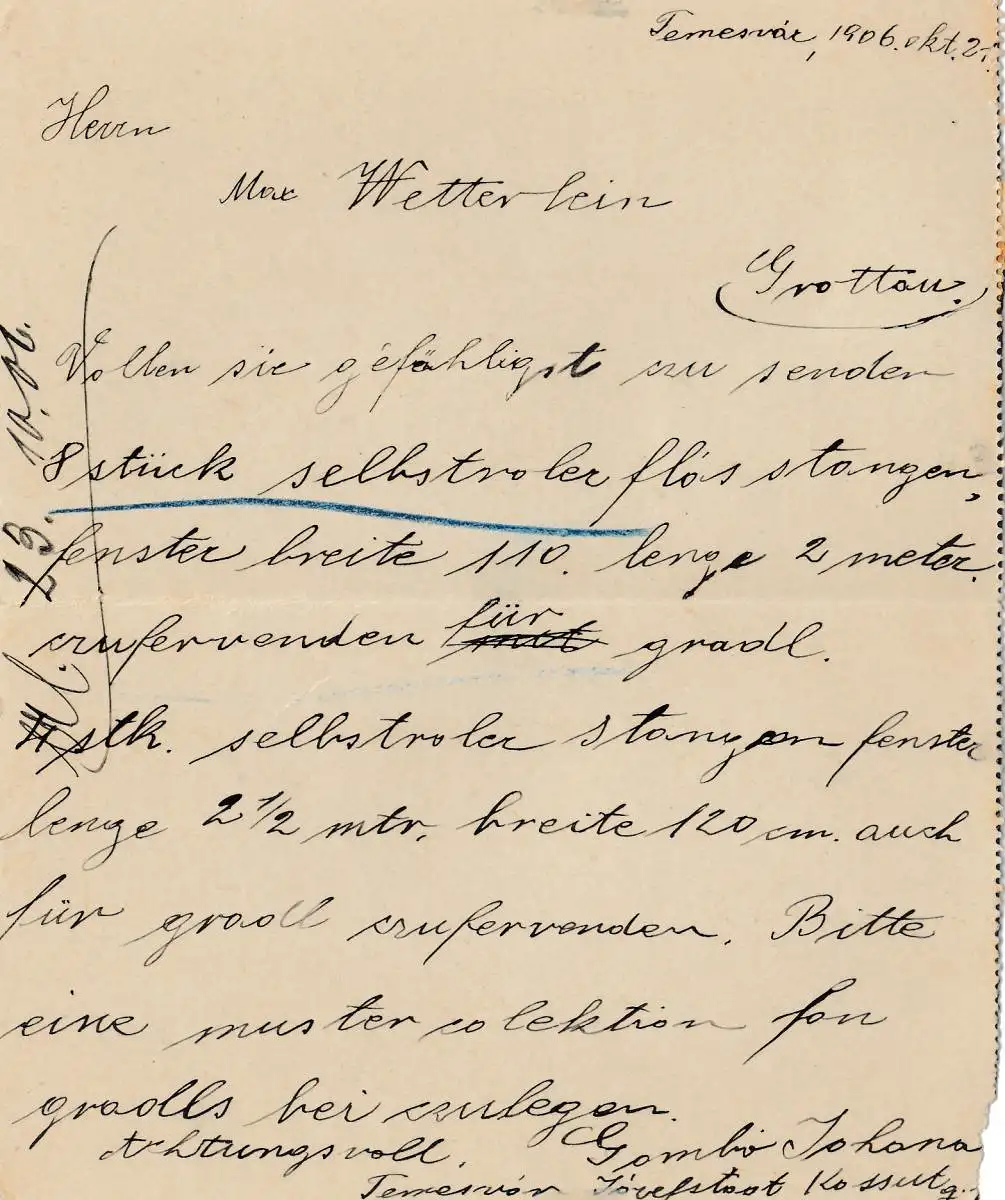 Temesvár, 1906. okt. 21.
Herrn
Max Wetterlein
Grottau.
Vollen sie gefähligst zu senden
8 stück selbstroler flós stangen,
fenster breite 110. lenge 2 meter.
czufervenden für gradl.
stk. selbstroler stangen fenster
lenge 2 1/2 mtr. breite 120 cm. auch
für gradl czufervenden. Bitte
eine muster colektion fon
gradls bei czulegen.
Achtungsvoll. Gombó Johana
Temesvár Józefstadt Kossut g.
23. 10. 06.